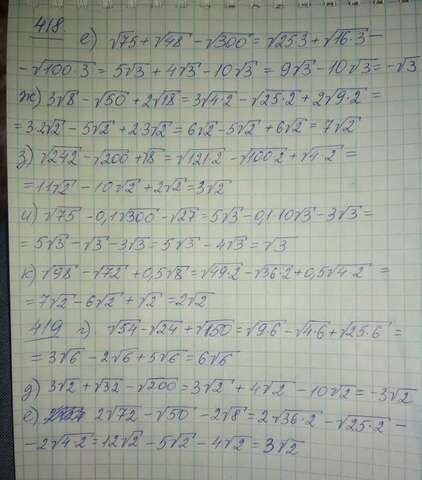 418.
е) √75 + √48 - √300 = √25·3 + √16·3 -
- √100·3 = 5√3 + 4√3 - 10√3 = 9√3 - 10√3 = -√3
ж) 3√8 - √50 + 2√18 = 3√4·2 - √25·2 + 2√9·2 =
= 3·2√2 - 5√2 + 2·3√2 = 6√2 - 5√2 + 6√2 = 7√2
з) √242 - √200 + √8 = √121·2 - √100·2 + √4·2 =
= 11√2 - 10√2 + 2√2 = 3√2
и) √75 - 0,1√300 - √27 = 5√3 - 0,1·10√3 - 3√3 =
= 5√3 - √3 - 3√3 = 5√3 - 4√3 = √3
к) √98 - √72 + 0,5√8 = √49·2 - √36·2 + 0,5√4·2 =
= 7√2 - 6√2 + √2 = 2√2
419 г) √54 - √24 + √150 = √9·6 - √4·6 + √25·6 =
= 3√6 - 2√6 + 5√6 = 6√6
д) 3√2 + √32 - √200 = 3√2 + 4√2 - 10√2 = -3√2
е) 2√72 - √50 - 2√8 = 2√36·2 - √25·2 -
- 2√4·2 = 12√2 - 5√2 - 4√2 = 3√2